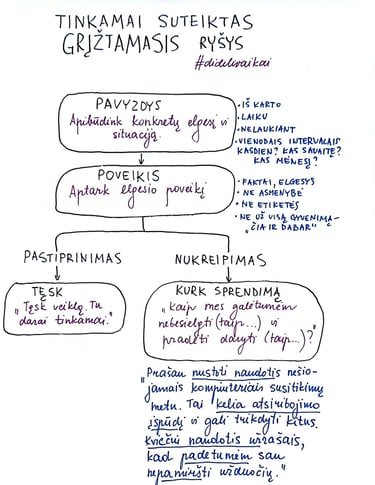 TINKAMAI SUTEIKTAS
GRĮŽTAMASIS RYŠYS
#didelivaikai
PAVYZDYS
Apibūdink konkretų elgesį ir
situaciją.
• IŠ KARTO
• LAIKU
• NELAUKIANT
• VIENODAIS INTERVALAIS
KASDIEN? KAS SAVAITĘ?
KAS MĖNESĮ?
POVEIKIS
Aptark elgesio poveikį
• FAKTAI, ELGESYS
• NE ASMENYBĖ
• NE ETIKETĖS
• NE UŽ VISĄ GYVENIMĄ –
„ČIA IR DABAR"
PASTIPRINIMAS
NUKREIPIMAS
TĘSK
„Tęsk veiklą. Tu
darai tinkamai."
KURK SPRENDIMĄ
„Kaip mes galėtumėm
nebesielgti (taip...) ir
pradėti daryti (taip...)?"
„Prašau nustoti naudotis nešio-
jamais kompiuteriais susitikimų
metu. Tai kelia atsiribojimo
įspūdį ir gali trikdyti kitus.
Kviečiu naudotis užrašais,
kad padėtumėm sau
nepamiršti užduočių."